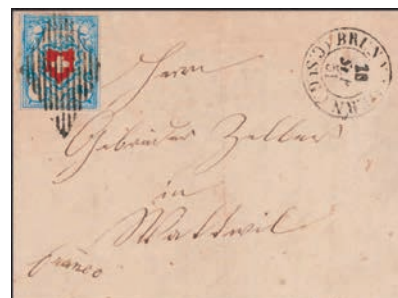 BRUNNEN
18
51
Herrn
Gebrüder Zeller
in
Wattwil
franco